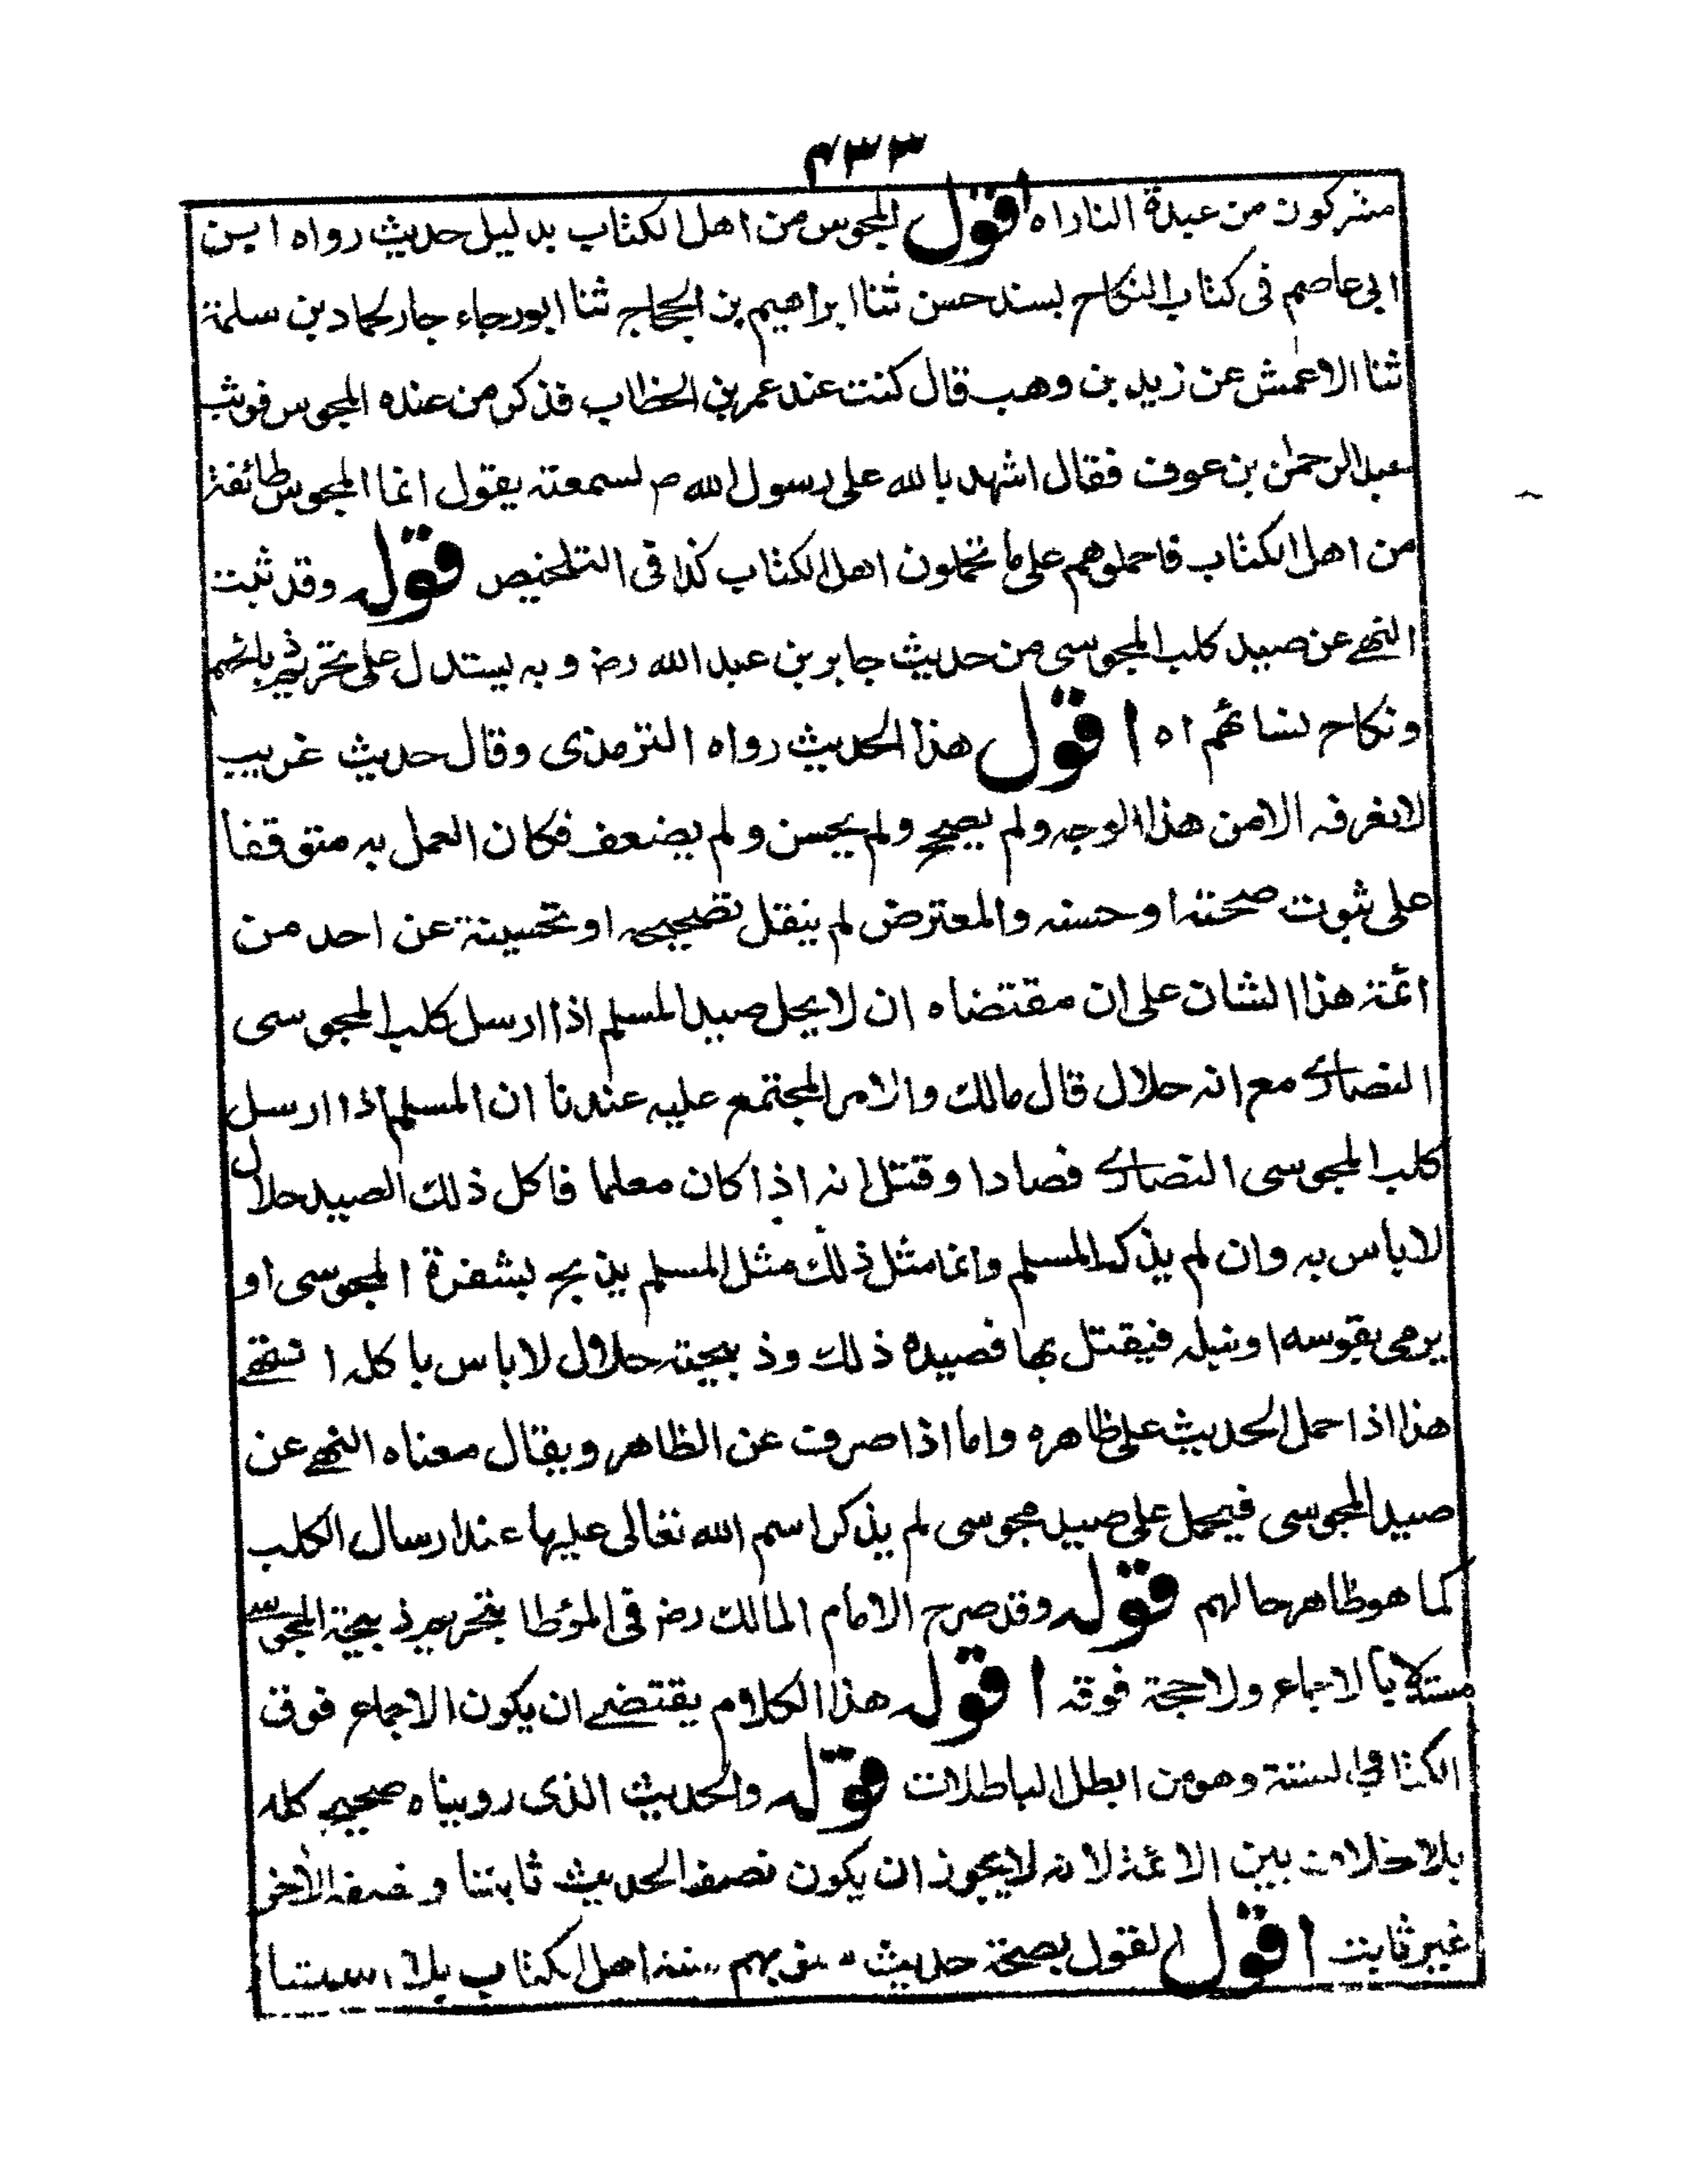 ٤٣٣
مشركون من عبدة النار اه اقول المجوس من اهل الكتاب بدليل حديث رواه ابن
ابى عاصم فى كتاب النكاح بسند حسن ثنا ابراهيم بن الحجاج ثنا ابو رجاء جار لحماد بن سلمة
ثنا الاعمش عن زيد بن وهب قال كنت عند عمر بن الخطاب فذكر من عنده المجوس فوثب
عبد الرحمن بن عوف فقال اشهد بالله على رسول الله ص لسمعته يقول انما المجوس طائفة
من اهل الكتاب فاحملوهم على ما تحملون اهل الكتاب كذا فى التلخيص قوله وقد ثبت
النهى عن صيد كلب المجوسى من حديث جابر بن عبد الله رض وبه يستدل على تحريم ذبائحهم
ونكاح نسائهم اه اقول هذا الحديث رواه الترمذى وقال حديث غريب
لانعرفه الا من هذا الوجه ولم يصحح ولم يحسن ولم يضعف فكان العمل به متوقفا
على ثبوت صحته او حسنه والمعترض لم ينقل تصحيحه او تحسينه عن احد من
ائمة هذا الشان على ان مقتضاه ان لا يحل صيد المسلم اذا ارسل كلب المجوسى
الضارى مع انه حلال قال مالك والامر المجتمع عليه عندنا ان المسلم اذا ارسل
كلب المجوسى الضارى فصادا وقتل انه اذا كان معلما فاكل ذلك الصيد حلال
لا باس به وان لم يذكه المسلم وانما مثل ذلك مثل المسلم يذبح بشفرة المجوسى او
يرمى بقوسه او نبله فيقتل بها فصيده ذلك وذبيحته حلال لا باس باكله انتهى
هذا اذا حمل الحديث على ظاهره واما اذا صرف عن الظاهر ويقال معناه النهى عن
صيد المجوسى فيحمل على صيد مجوسى لم يذكر اسم الله تعالى عليها عند ارسال الكلب
كما هو ظاهر حالهم قوله وقد صرح الامام المالك رض فى المؤطا بتحريم ذبيحة المجوسى
مستدلا بالاجماع ولا حجة فوقه اقول هذا الكلام يقتضى ان يكون الاجماع فوق
الكتاب والسنة وهو من ابطل الباطلات قوله والحديث الذى رويناه صحيح كله
بلا خلاف بين الائمة لانه لا يجوز ان يكون نصف الحديث ثابتا ونصفه الاخر
غير ثابت اقول القول بصحة حديث سنوا بهم سنة اهل الكتاب بلا